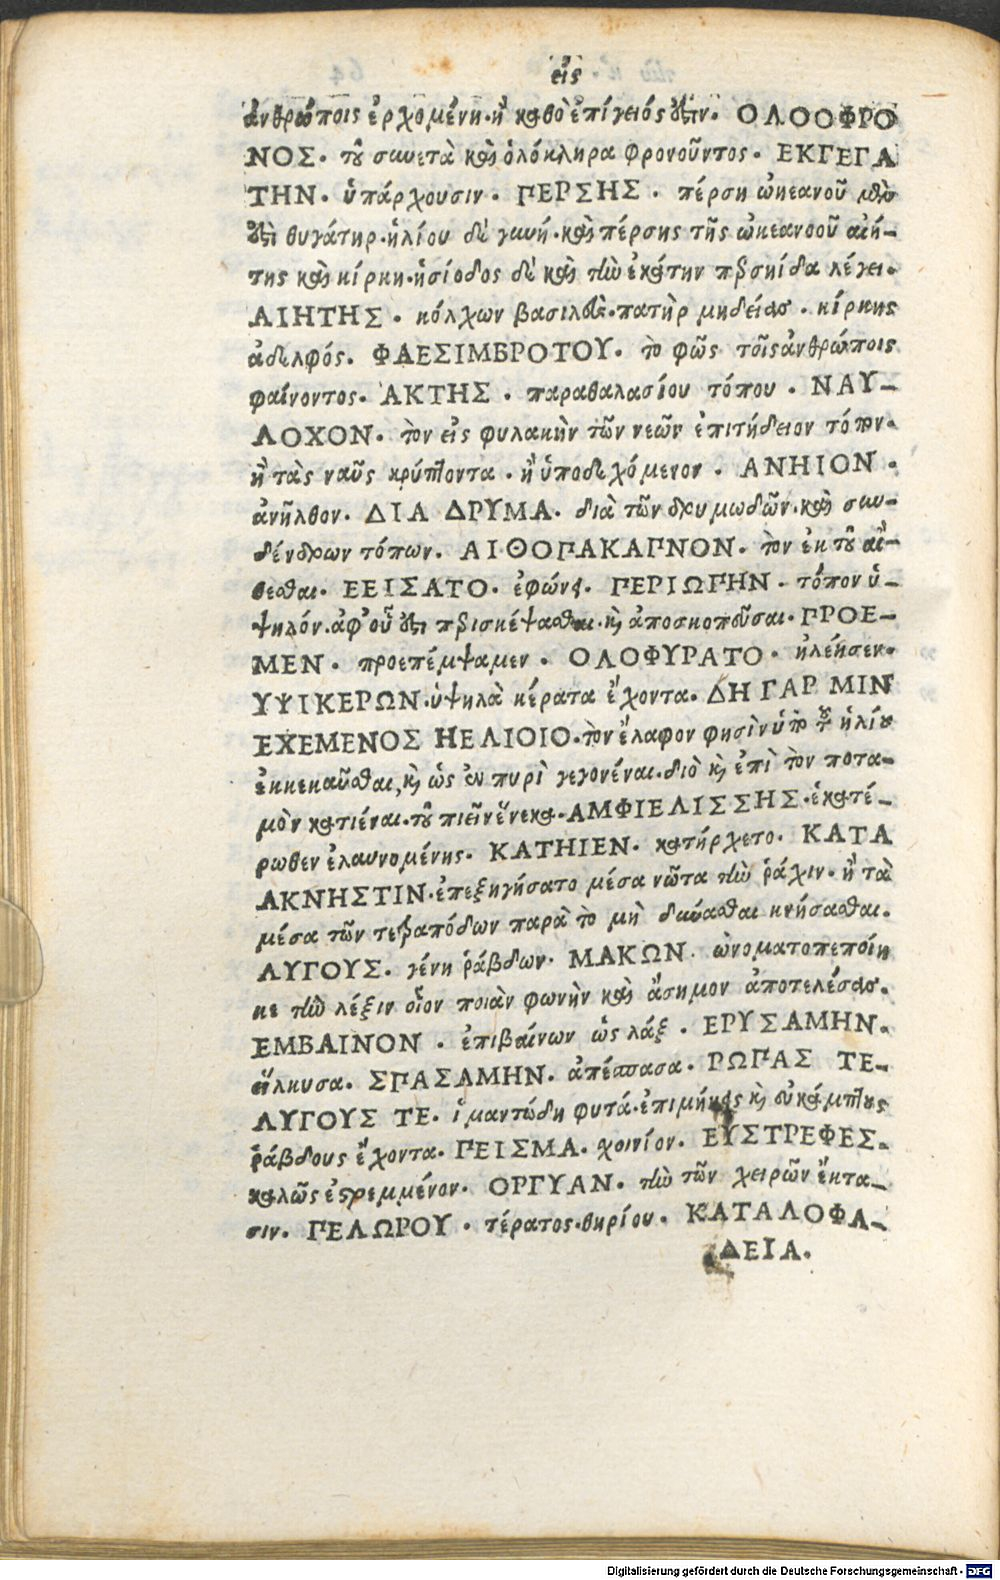 εἰς
ἀνθρώποις ἐρχομένη· ἢ καθὸ ἐπίγειός ἐστιν. ΟΛΟΟΦΡΟ
ΝΟΣ. τοῦ συνετὰ καὶ ὁλόκληρα φρονοῦντος. ΕΚΓΕΓΑ
ΤΗΝ. ὑπάρχουσιν. ΠΕΡΣΗΣ. πέρση ὠκεανοῦ μέν
ἐστι θυγάτηρ· ἡλίου δὲ γυνή· καὶ πέρσης τῆς ὠκεανοοῦ αἰή-
της καὶ κίρκη· ἡσίοδος δὲ καὶ τὴν ἑκάτην περσηίδα λέγει.
ΑΙΗΤΗΣ. κόλχων βασιλεὺς· πατὴρ μηδείας. κίρκης
ἀδελφός. ΦΑΕΣΙΜΒΡΟΤΟΥ. τὸ φῶς τοῖς ἀνθρώποις
φαίνοντος. ΑΚΤΗΣ. παραθαλασίου τόπου. ΝΑΥ-
ΛΟΧΟΝ. τὸν εἰς φυλακὴν τῶν νεῶν ἐπιτήδειον τόπον.
ἢ τὰς ναῦς κρύπτοντα. ἢ ὑποδεχόμενον. ΑΝΗΙΟΝ.
ἀνῆλθον. ΔΙΑ ΔΡΥΜΑ. διὰ τῶν δρυμωδῶν. καὶ συν-
δένδρων τόπων. ΑΙΘΟΠΑΚΑΠΝΟΝ. τὸν ἐκ τοῦ αἴ-
θεσθαι. ΕΕΙΣΑΤΟ. ἐφάνη. ΠΕΡΙΩΠΗΝ. τόπον ὑ-
ψηλόν. ἀφ' οὗ ἔστι περισκέψασθαι. καὶ ἀποσκοποῦσαι. ΠΡΟΕ-
ΜΕΝ. προεπέμψαμεν. ΟΛΟΦΥΡΑΤΟ. ἠλέησεν.
ΥΨΙΚΕΡΩΝ. ὑψηλὰ κέρατα ἔχοντα. ΔΗ ΓΑΡ ΜΙΝ
ΕΧΕΜΕΝΟΣ ΗΕΛΙΟΙΟ. τὸν ἔλαφον φησὶν ὑπὸ τοῦ ἡλίου
ἐκκεκαῦσθαι, καὶ ὡς ἐν πυρὶ γεγονέναι. διὸ καὶ ἐπὶ τὸν ποτα-
μὸν κατιέναι. τοῦ πιεῖν ἕνεκα. ΑΜΦΙΕΛΙΣΣΗΣ. ἑκατέ-
ρωθεν ἐλαυνομένης. ΚΑΤΗΙΕΝ. κατήρχετο. ΚΑΤΑ
ΑΚΝΗΣΤΙΝ. ἐπεξηγήσατο μέσα νῶτα τὴν ῥάχιν. ἢ τὰ
μέσα τῶν τετραπόδων παρὰ τὸ μὴ δύνασθαι κνήσασθαι.
ΛΥΓΟΥΣ. γένη ῥάβδων. ΜΑΚΩΝ. ὠνοματοπεποίη
κε τὴν λέξιν οἷον ποιὰν φωνὴν καὶ ἄσημον ἀποτελέσας.
ΕΜΒΑΙΝΟΝ. ἐπιβαίνων ὡς λάξ. ΕΡΥΣΑΜΗΝ.
εἵλκυσα. ΣΠΑΣΑΜΗΝ. ἀπέσπασα. ΡΩΠΑΣ ΤΕ-
ΛΥΓΟΥΣ ΤΕ. ἱμαντώδη φυτά. ἐπιμήκεις καὶ εὐκάμπτους
ῥάβδους ἔχοντα. ΠΕΙΣΜΑ. χοινίον. ΕΥΣΤΡΕΦΕΣ.
καλῶς ἐστρεμμένον. ΟΡΓΥΑΝ. τὴν τῶν χειρῶν ἔκτα-
σιν. ΠΕΛΩΡΟΥ. τέρατος. θηρίου. ΚΑΤΑΛΟΦΑ-
ΔΕΙΑ.
Digitalisierung gefördert durch die Deutsche Forschungsgemeinschaft - DFG